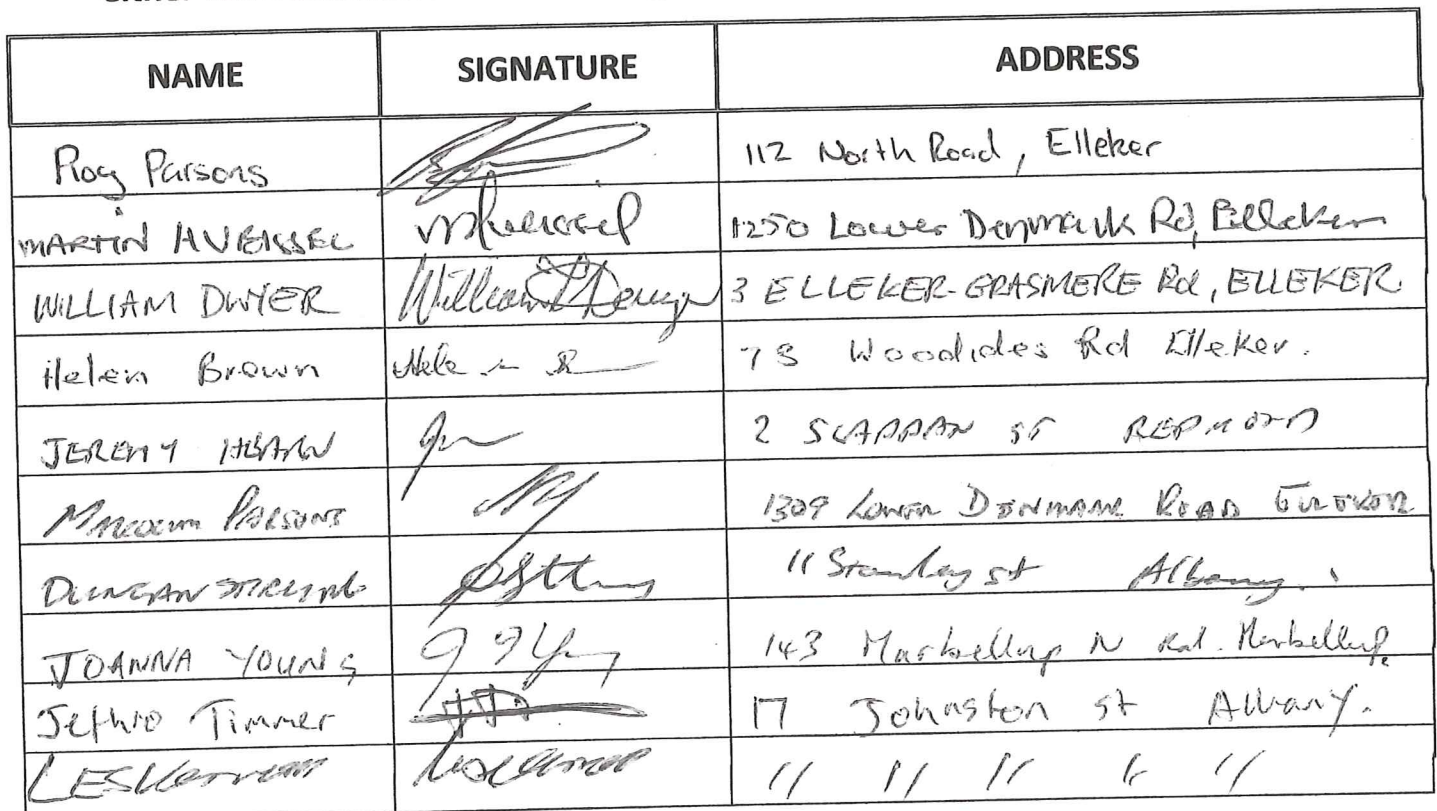 NAME SIGNATURE ADDRESS
Rog Parsons 112 North Road, Elleker
MARTIN 1250 Lower Denmark Rd, Elleker
WILLIAM DWYER William 3 ELLEKER-GRASMERE Rd, ELLEKER
Helen Brown Hele 78 Rd Elleker.
JEREMY HEARN 2 ST REDMOND
Malcolm Parsons 1309 Lower Denmark Road Elleker
DUNCAN STIRLING 11 Stanley st Albany.
JOANNA YOUNG 143 Marbellup N Rd. Marbellup.
Jethro Timmer 17 Johnston st Albany.
LES " " " " "